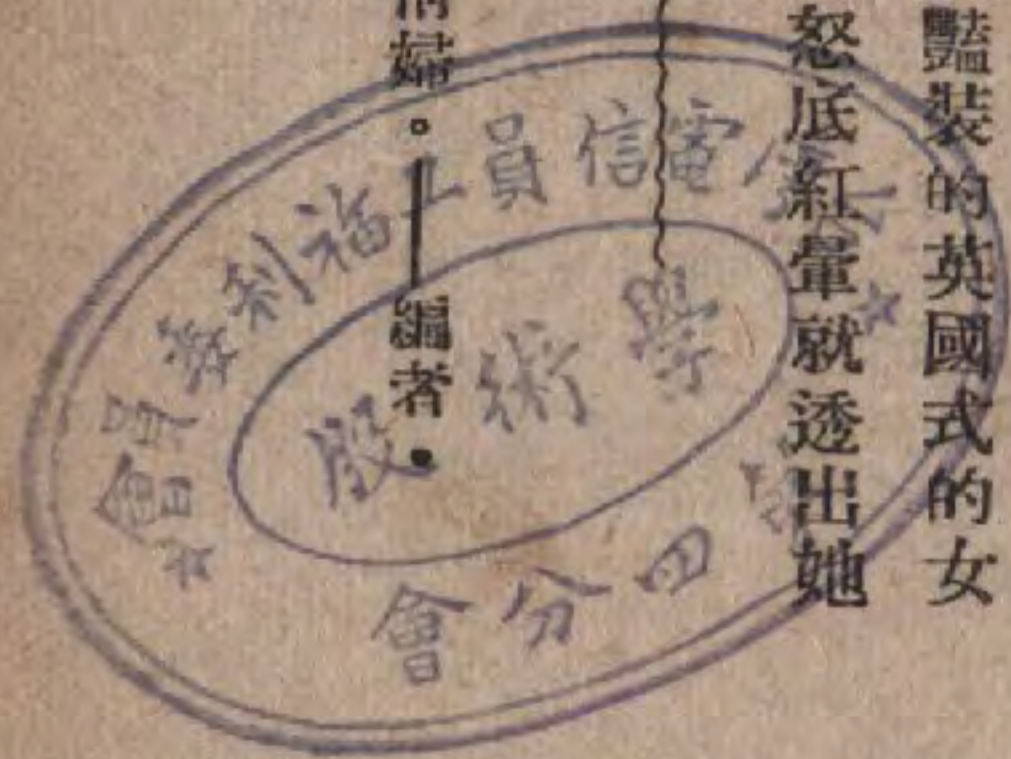 豔裝的英國式的女
怒底紅暈就透出她
婦。——編者。
電信員工福利委員會
學術股
四分會